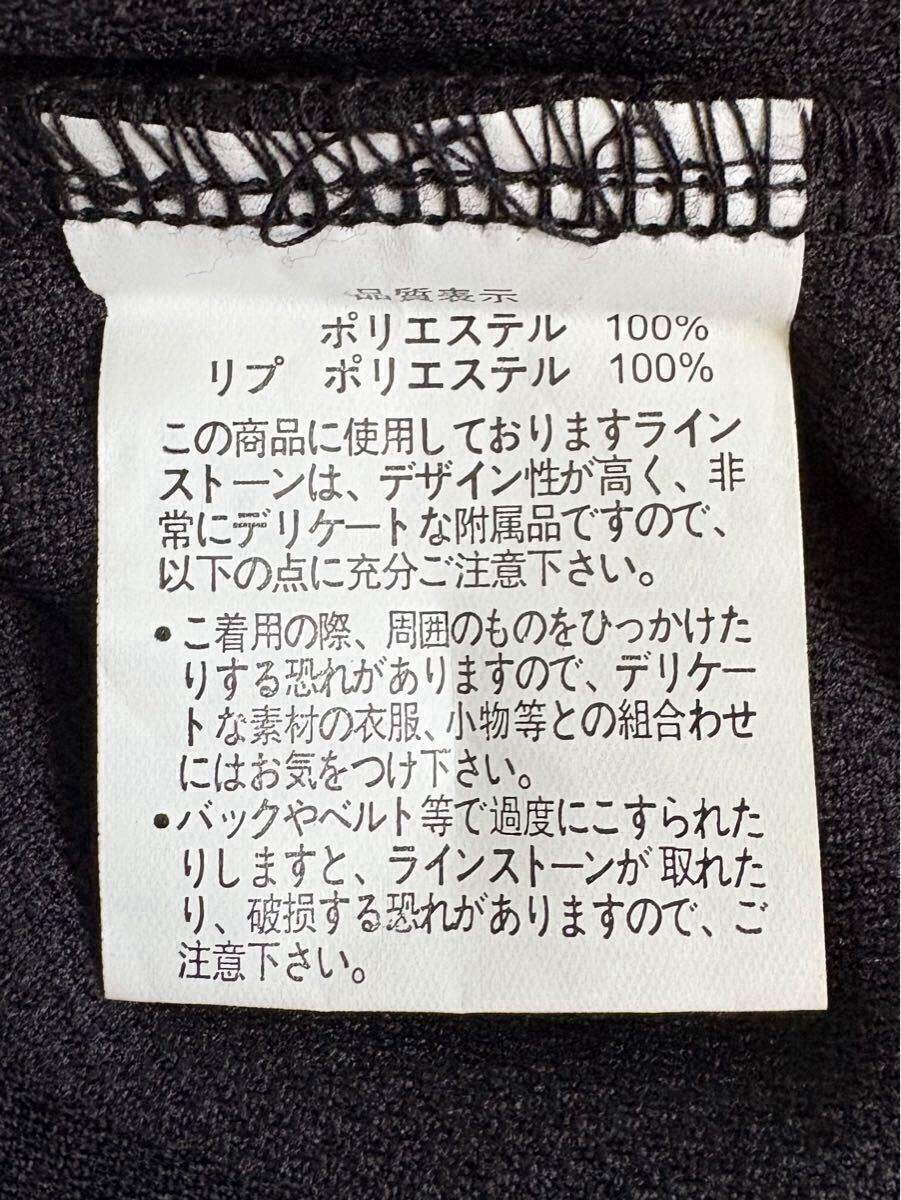 品質表示
ポリエステル 100%
リプ ポリエステル 100%
この商品に使用しておりますライン
ストーンは、デザイン性が高く、非
常にデリケートな附属品ですので、
以下の点に充分ご注意下さい。
•こ着用の際、周囲のものをひっかけた
りする恐れがありますので、デリケー
トな素材の衣服、小物等との組合わせ
にはお気をつけ下さい。
•バックやベルト等で過度にこすられた
りしますと、ラインストーンが取れた
り、破损する恐れがありますので、ご
注意下さい。